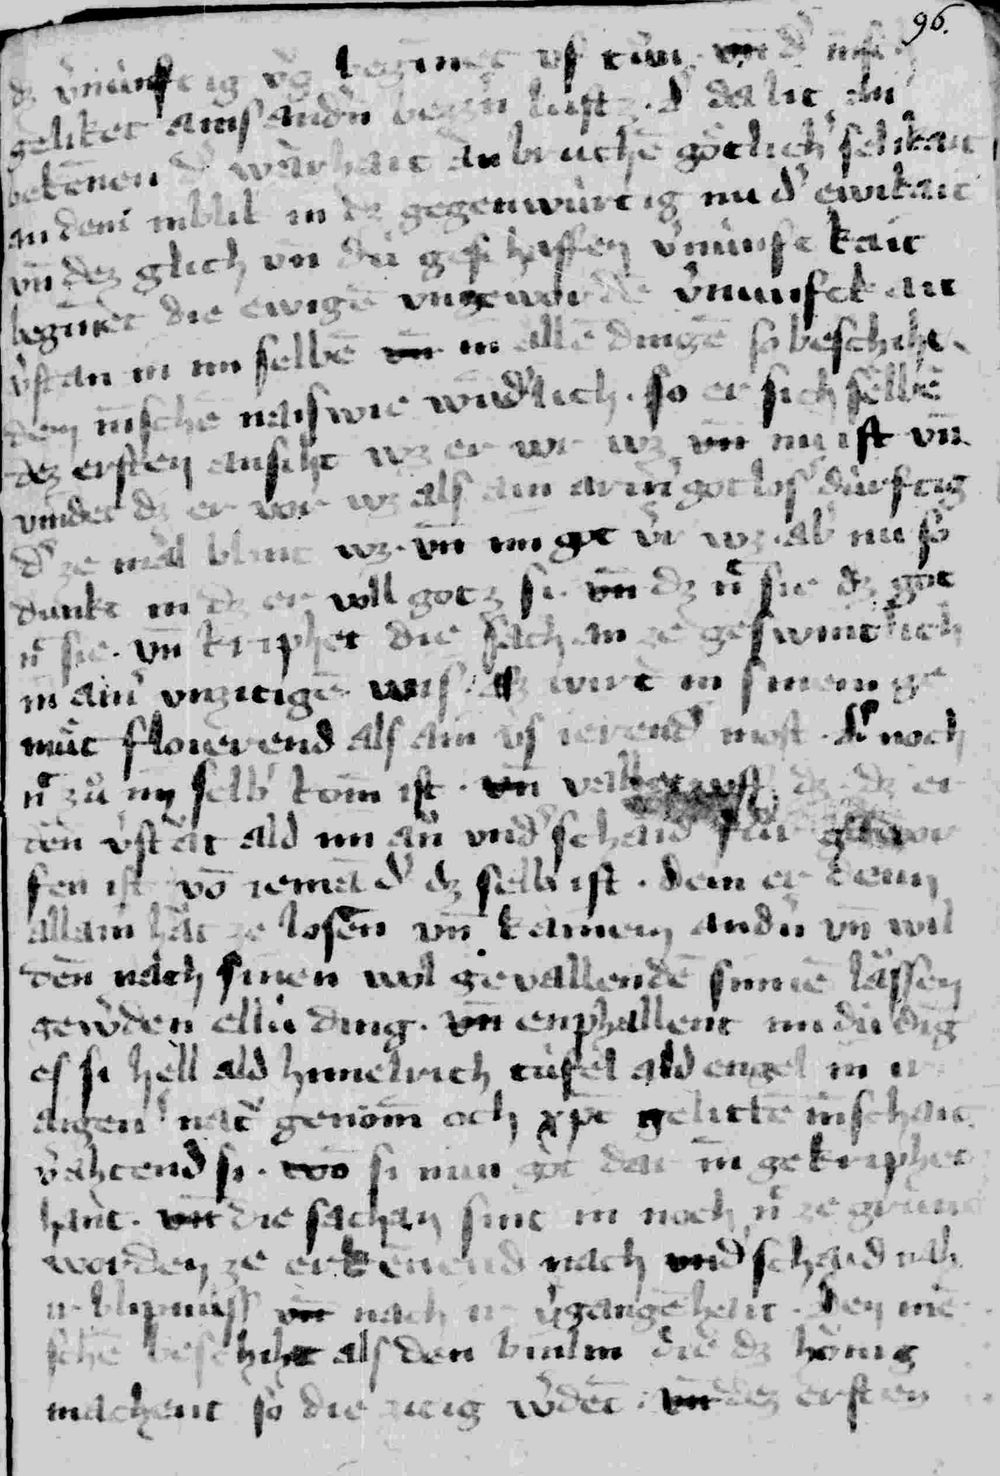 96.
dz v̓nünftig v̓g beginnet vf tůn. vn̄ d̓ m̄sch
geliket ains andn̓ begin̄ lustz. d̓ da lit an
bekēnen d̓ wârhait an bruchē götlich̓ selikait
an dem inblik in dz gegenwürtig nu d̓ ewikait
vn̄ dez glich vn̄ dü geschaffen v̓nünftkait
begīnet die ewigē vngewordē v̓nunftkait
v̓stan in im selbē vn̄ in allē dingē so beschiht
den m̄schē nais wie wūd̓lich. so er sich selbē
dez ersten ansiht wz er vor wz vn̄ nu ist vn̄
vindet dz er vor wz als ain arm̓ gotlos̓ dürftig
d̓ ze mâl blint wz. vn̄ im got v̓r wz. ab̓ nu so
dunkt in dz er voll gotz si. vn̄ dz nt̓ sie dz got
nt̓ sie. vn̄ kriphet die sach an ze geswintlich
in ain̓ vnzitigē wis. Ez wirt in sinem ge
müt florierend als ain v̓s ierend̓ most. d̓ noch
nt̓ zů im selb̓ kom̄ ist. vn̄ vallet vff dz. dz er
den̄ v̓stât ald im ân vnd̓schaid für geworfen
fen ist vō iemād̓ dz selb ist. dem er denn
allain hât ze losen vn̄ kainem andn̓ vn̄ wil
den̄ nâch sinen wol gevallendē sinnē lâssen
gew̓den ellü ding. vn̄ enphallent im dü ding
es si hell ald himelrich tüfel ald engel in ir
aigen̓ nat̓ genom̄ och xp̄c gelittē m̄schait
v̓ahtend si. wō si nun got dar in̄ gekriphet
hânt. vn̄ die sachan sint in noch nt̓ ze grund
worden ze erkēnend nach vnd̓schaid nah
ir blipnüss vn̄ nach ir v̓gangēhait. Den mē
schē beschiht als den binlin die dz hönig
machent so die zitig w̓det. vn̄ dez ersten